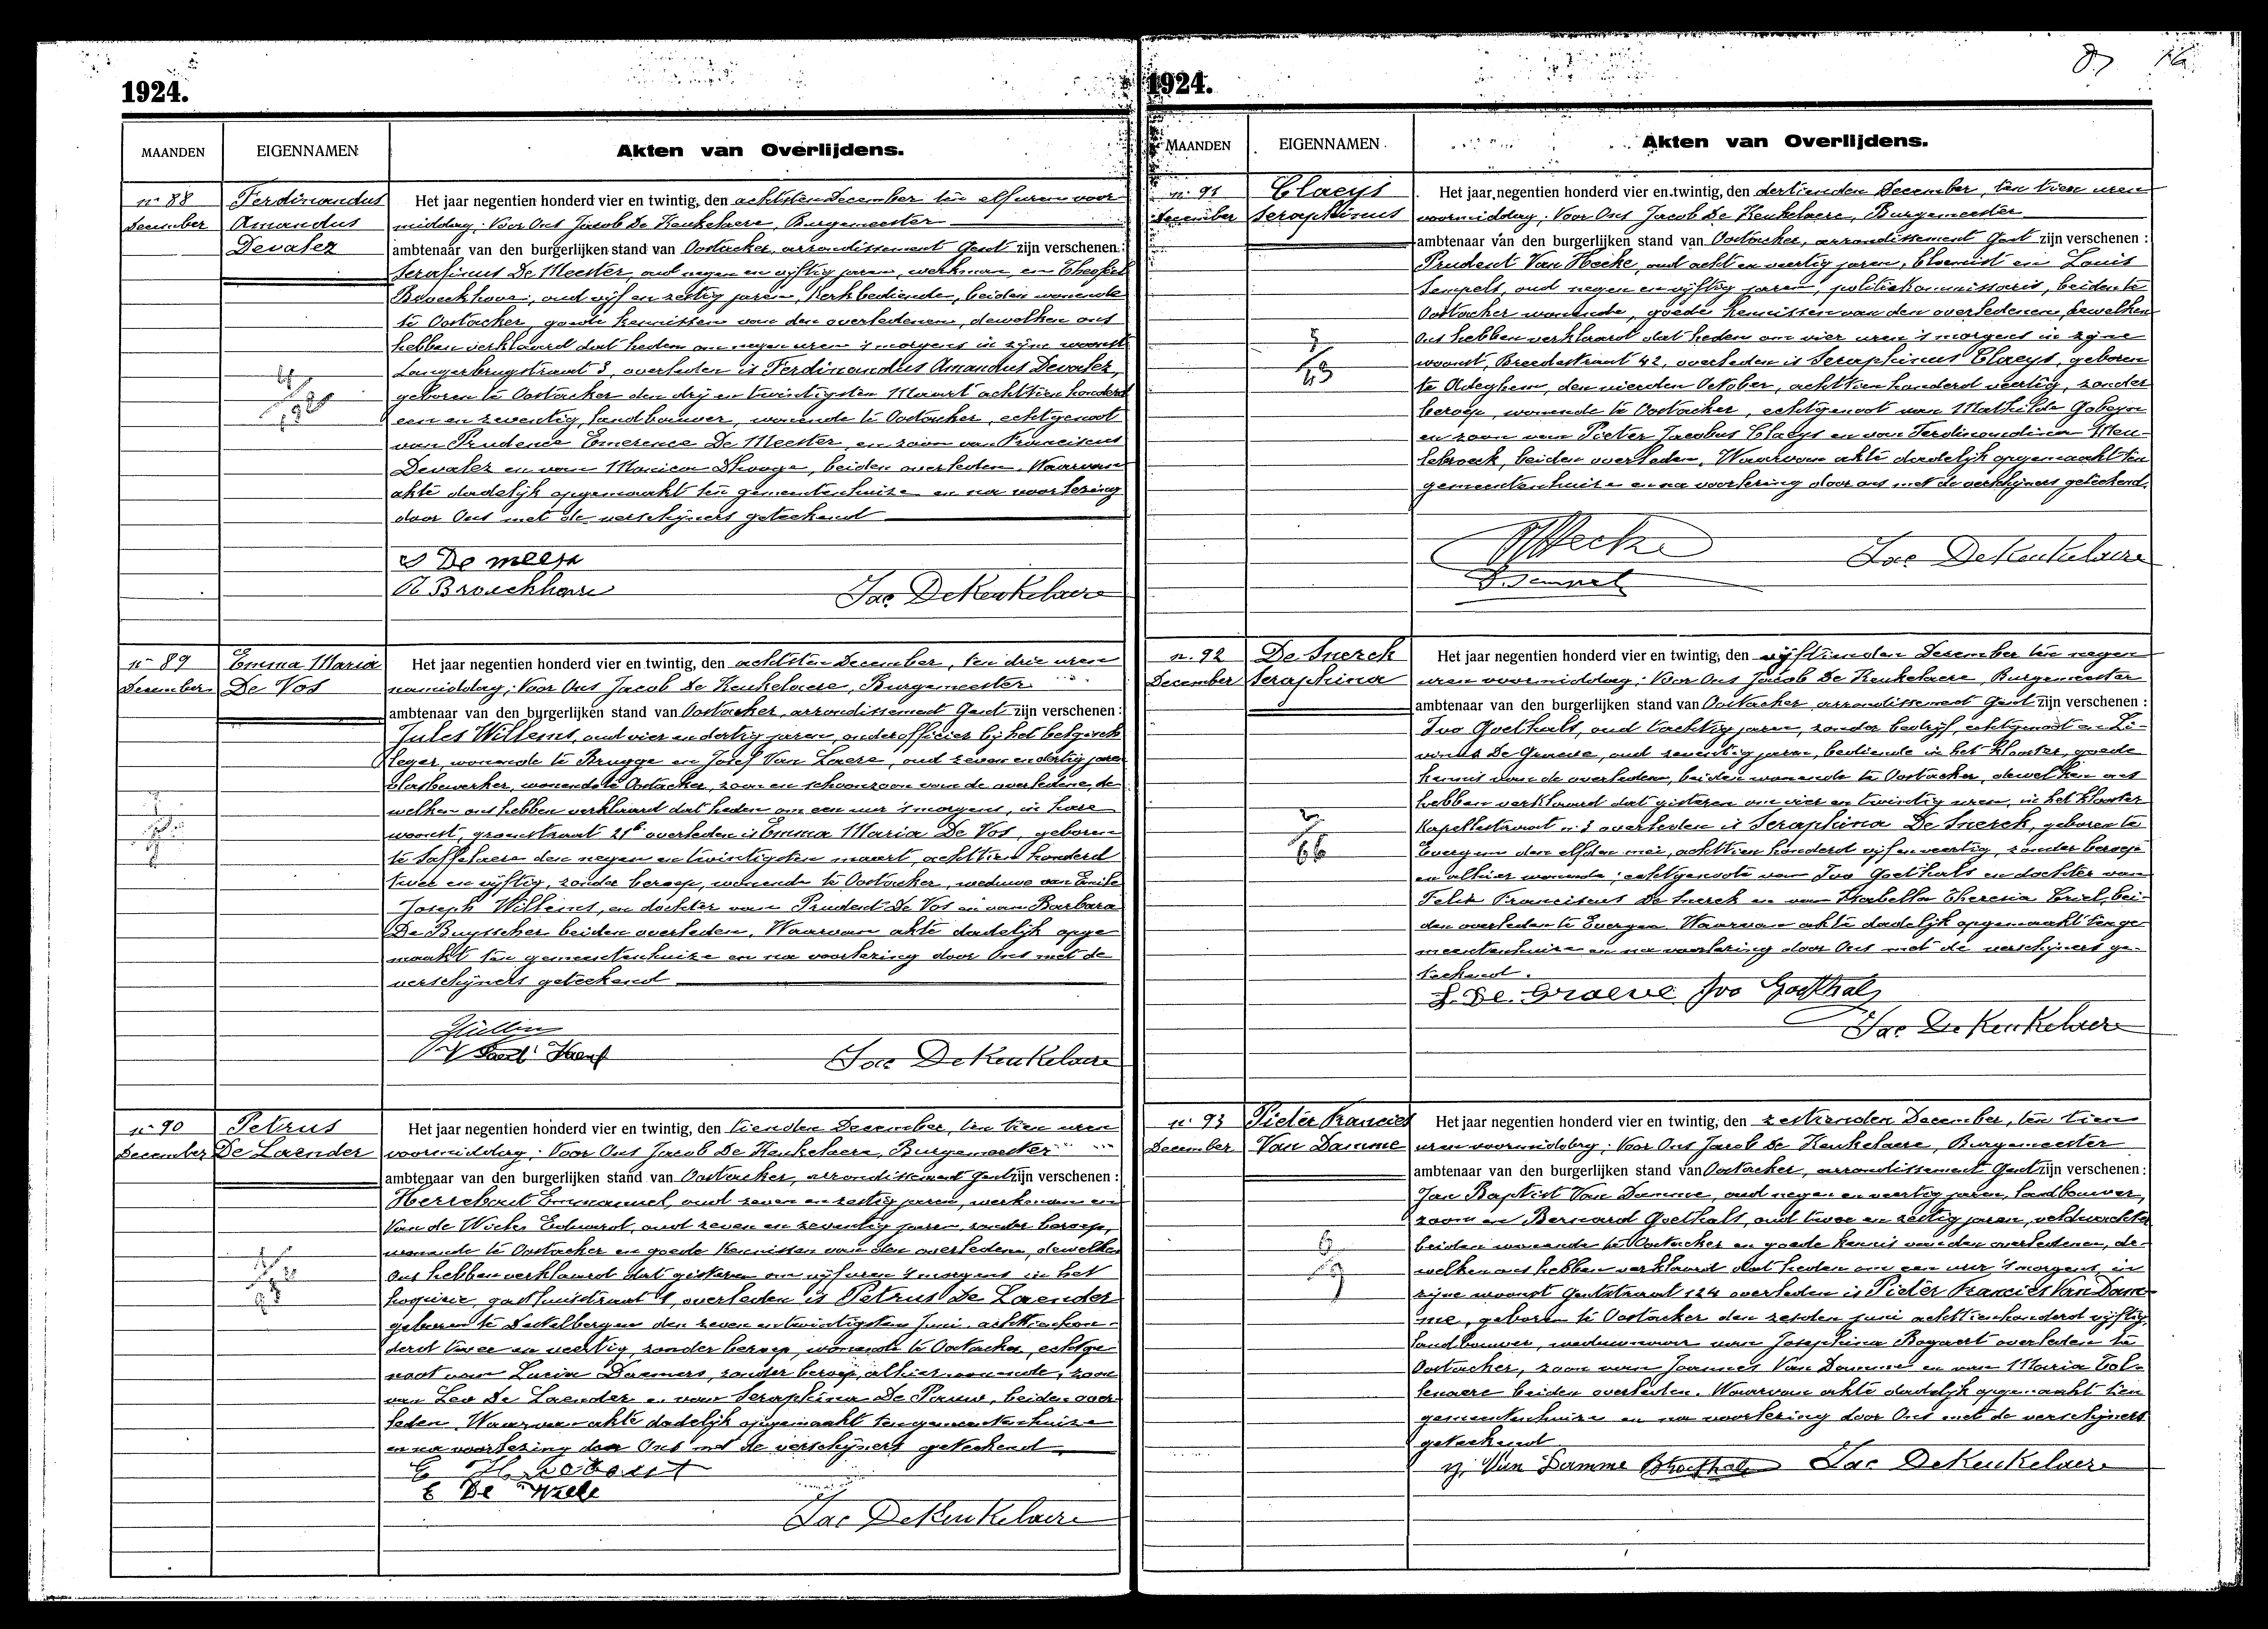 1924.
MAANDEN EIGENNAMEN Akten van Overlijdens.
nr 88 Ferdinandus Het jaar negentien honderd vier en twintig, den achtsten December ten elf uren voor
December Amandus middag; Voor Ons Jacob De Keukelaere, Burgemeester
Devalez ambtenaar van den burgerlijken stand van Oostacker, arrondissement Gent zijn verschenen:
Serafinus De Meester, oud negen en vijftig jaren, werkman, en Theofiel
Broeckhove, oud vijf en zestig jaren, Kerkbediende, beiden wonende
te Oostacker, goede kennissen van den overledenen, dewelken ons
hebben verklaard dat heden om negen uren 's morgens in zijne woonst
Langerbrugstraat 3, overleden is Ferdinandus Amandus Devalez,
geboren te Oostacker den drij en twintigsten Maart achttien honderd
een en zeventig, landbouwer, wonende te Oostacker, echtgenoot
van Prudence Emerence De Meester, en zoon van Franciscus
Devalez en van Monica Dhooge, beiden overleden. Waarvan
akte dadelijk opgemaakt ten gemeentenhuize en na voorlezing
door Ons met de verschijners geteekend
S De meester
Jac. De Keukelaere
nr 89 Emma Maria Het jaar negentien honderd vier en twintig, den achtsten December, ten drie uren
December De Vos namiddag; Voor Ons Jacob De Keukelaere, Burgemeester
ambtenaar van den burgerlijken stand van Oostacker, arrondissement Gent zijn verschenen:
Jules Willems, oud vier en dertig jaren, onderofficier bij het belgisch
leger, wonende te Brugge en Josef Van Laere, oud zeven en dertig jaren
vlasbewerker, wonende te Oostacker, zoon en schoonzoon van de overledene, de
welken ons hebben verklaard dat heden om een uur 's morgens, in hare
woonst, groenstraat 21b overleden is Emma Maria De Vos, geboren
te Saffelaere den negen en twintigsten maart, achttien honderd
twee en vijftig, zonder beroep, wonende te Oostacker, weduwe van Emile
Joseph Willems, en dochter van Prudent De Vos en van Barbara
De Buysscher beiden overleden. Waarvan akte dadelijk opge
maakt ten gemeentenhuize en na voorlezing door Ons met de
verschijners geteekend
Jac De Keukelaere
nr 90 Petrus Het jaar negentien honderd vier en twintig, den tienden December, ten tien uren
December De Laender voormiddag; Voor Ons Jacob De Keukelaere, Burgemeester
ambtenaar van den burgerlijken stand van Oostacker, arrondissement Gent zijn verschenen:
Herrebout Emmanuel, oud zeven en zestig jaren, werkman en
Van de Wiele Eduard, oud zeven en zeventig jaren, zonder beroep,
wonende te Oostacker en goede Kennissen van den overledene, dewelke
Ons hebben verklaard dat gisteren om vijf uren 's morgens in het
hospicie, gasthuisstraat 1, overleden is Petrus De Laender
geboren te Destelbergen den zeven en twintigsten Juni achttien hon-
derd twee en veertig, zonder beroep, wonende te Oostacker, echtge
noot van Lucia Daemers, zonder beroep, alhier wonende, zoon
van Leo De Laender en van Seraphina De Pauw, beiden over
leden. Waarvan akte dadelijk opgemaakt ten gemeentenhuize
en na voorlezing door Ons met de verschijners geteekend
E Herrebout
E De Wiele
Jac De Keukelaere
1924.
MAANDEN EIGENNAMEN Akten van Overlijdens.
nr 91 Claeys Het jaar negentien honderd vier en twintig, den dertienden December, ten tien uren
December Seraphinus voormiddag; Voor Ons Jacob De Keukelaere, Burgemeester
ambtenaar van den burgerlijken stand van Oostacker, arrondissement Gent zijn verschenen:
Prudent Van Hecke, oud acht en veertig jaren, bloemist en Louis
Sempels, oud negen en vijftig jaren, politiekommissaris, beiden te
Oostacker wonende, goede kennissen van den overledenen, dewelken
Ons hebben verklaard dat heden om vier uren 's morgens in zijne
woonst, Breedestraat 42, overleden is Seraphinus Claeys, geboren
te Adeghem, den vierden October, achttien honderd veertig, zonder
beroep, wonende te Oostacker, echtgenoot van Mathilde Gobeyn
en zoon van Pieter Jacobus Claeys en van Ferdinandina Meu-
lebroeck, beiden overleden. Waarvan akte dadelijk opgemaakt ten
gemeentenhuize en na voorlezing door ons met de verschijners geteekend.
Jac. De Keukelaere
nr 92 De Snerck Het jaar negentien honderd vier en twintig, den vijftienden December ten negen
December Seraphina uren voormiddag; Voor Ons Jacob De Keukelaere, Burgemeester
ambtenaar van den burgerlijken stand van Oostacker, arrondissement Gent zijn verschenen:
Ivo Goethals, oud tachtig jaren, zonder bedrijf, echtgenoot en Li-
vinus De Graeve, oud zeventig jaren, bediende in het klooster, goede
kennis van de overleden, beiden wonende te Oostacker, dewelken ons
hebben verklaard dat gisteren om vier en twintig uren, in het klooster
Kapellestraat nr 3 overleden is Seraphina De Snerck, geboren te
Evergem den elfden mei, achttien honderd vijf en veertig, zonder beroep
en alhier wonende; echtgenoote van Ivo Goethals en dochter van
Felix Franciscus De Snerck en van Isabella Theresia Criel, bei-
den overleden te Evergem. Waarvan akte dadelijk opgemaakt ten ge-
meentenhuize en na voorlezing door Ons met de verschijners ge-
teekend.
L. De Graeve Ivo Goethals
Jac De Keukelaere
nr 93 Pieter Francies Het jaar negentien honderd vier en twintig, den zestienden December, ten tien
December Van Damme uren voormiddag; Voor Ons Jacob De Keukelaere, Burgemeester
ambtenaar van den burgerlijken stand van Oostacker, arrondissement Gent zijn verschenen:
Jan Baptist Van Damme, oud negen en veertig jaren, landbouwer,
zoon en Bernard Goethals, oud twee en zestig jaren, veldwachter
beiden wonende te Oostacker en goede kennis van den overledenen, de-
welken ons hebben verklaard dat heden om een uur 's morgens, in
zijne woonst Gentstraat 124 overleden is Pieter Francies Van Dam-
me, geboren te Oostacker den zesden juni achttienhonderd vijftig,
landbouwer, weduwnaar van Josephina Bogaert overleden te
Oostacker, zoon van Joannes Van Damme en van Maria Tol-
lenaere beiden overleden. Waarvan akte dadelijk opgemaakt tien
gemeentenhuize en na voorlezing door Ons met de verschijners
geteekend
Van Damme BGoethals Jac De Keukelaere